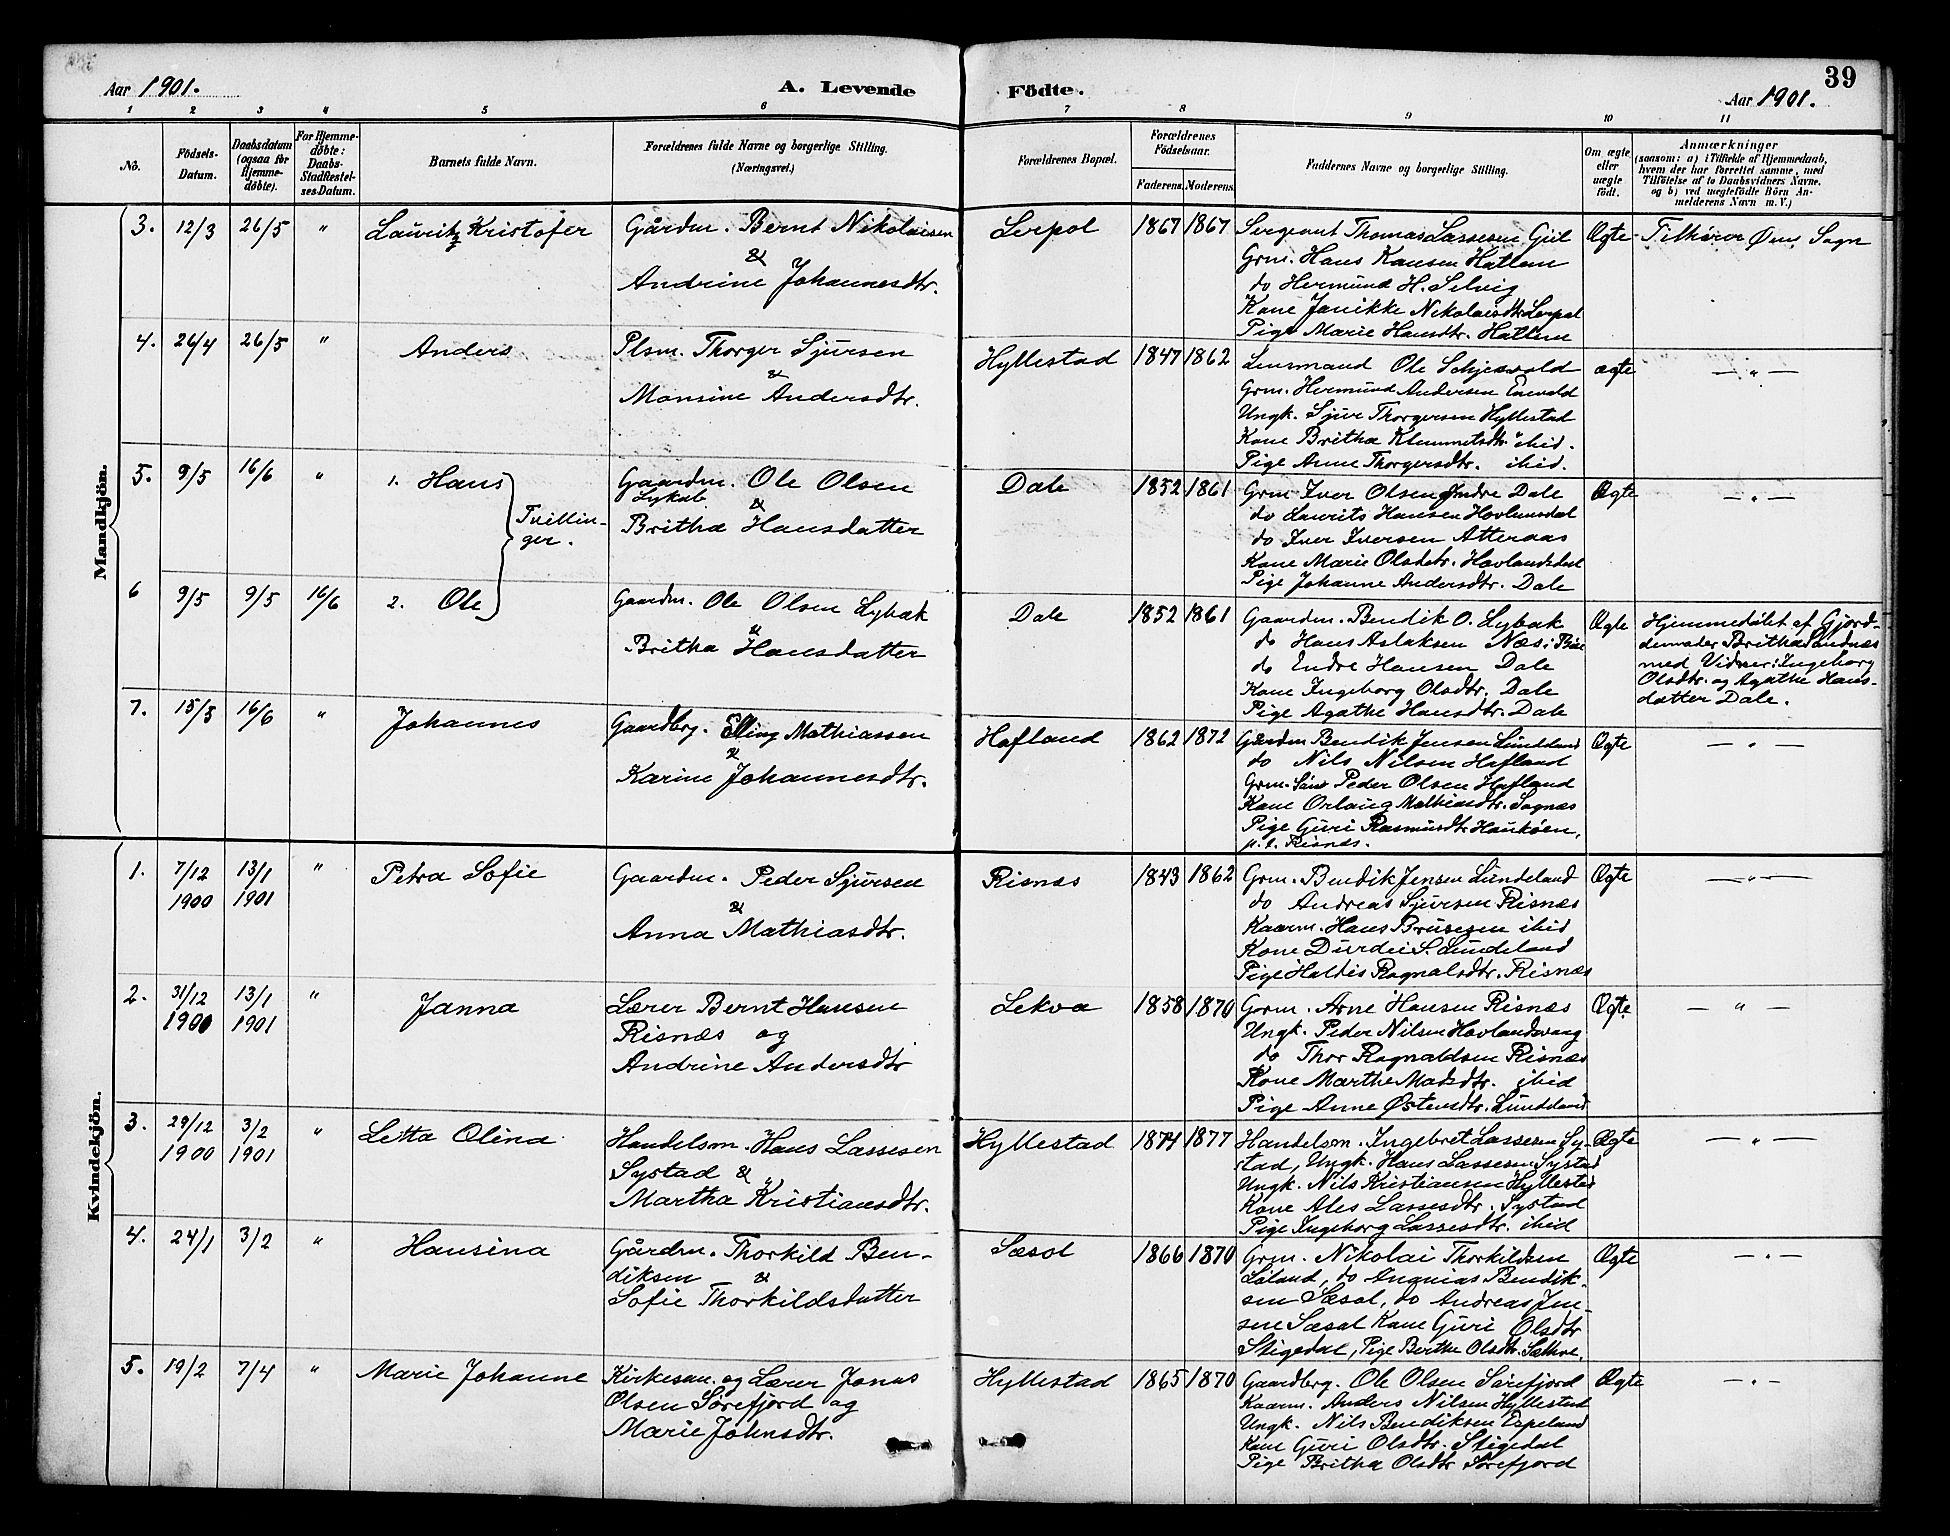 39
Aar 1901.
A. Levende
Födte.
Aar 1901.
1 2 3 4 5 6 7 8 9 10 11
No.
Födsels-Datum.
Daabsdatum (ogsaa for Hjemme-döbte).
For Hjemme-döbte: Daabs-Stadfæstel-ses-Datum.
Barnets fulde Navn.
Forældrenes fulde Navne og borgerlige Stilling.
(Næringsvei.)
Forældrenes Bopæl.
Forældrenes Födselsaar.
Faderens. Moderens.
Faddernes Navne og borgerlige Stilling.
Om ægte eller uægte födt.
Anmærkninger
(saasom: a) i Tilfælde af Hjemmedaab,
hvem der har forrettet samme, med
Tilföielse af to Daabsvidners Navne,
og b) ved uegtefödte Börn An-
melderens Navn m. V.)
Mandkjön.
3. 12/3 26/5 " Lauritz Kristofer
Gårdm. Bernt Nikolaisen
&
Andrine Johannesdtr.
Lerpol 1867 1867
Sergeant Thomas Lassesen Gjil
Grm. Hans Hansen Hatlem
do Hermund H. Selvig
Kone Janikke Nikolaisdtr Lerpol
Pige Marie Hansdtr. Hatlem
Ægte
Tilhører Øens Sogn
4. 26/4 26/5 " Anders
Plsm. Thorger Sjursen
&
Monsine Andersdtr.
Hyllestad 1847 1862
Lensmand Ole Schjesvold
Grm. Hermund Andersen Enevald
Ungk. Sjur Thorgersen Hyllestad
Kone Britha Klemmetsdtr. ibid.
Pige Anne Thorgersdtr. ibid.
ægte
— " —
5. 9/5 16/6 " 1. Hans
Tvillin-
ger.
Gaardm. Ole Olsen
Lybæk &
Britha Hansdatter
Dale 1852 1861
Grm Iver Olsen Indre Dale
do Laurits Hansen Hovlandsdal
do Iver Iversen Atteraas
Kone Marie Olsdtr. Hovlandsdal
Pige Johanne Andersdtr. Dale
Ægte
— " —
6 9/5 9/5 16/6 2. Ole
Gaardm. Ole Olsen Lybæk
&
Britha Hansdatter
Dale 1852 1861
Gaardm. Bendik O. Lybæk
do Hans Aslaksen Næs i Bøe
do Endre Hansen Dale
Kone Ingeborg Olsdtr. Dale
Pige Agathe Hansdtr. Dale
Ægte
Hjemmedøbt af Gjord-
demoder Britha Sandnæs
med Vidner: Ingeborg
Olsdtr. og Agathe Hans-
datter Dale.
7. 15/5 16/6 " Johannes
Gaardbrg. Elling Mathiassen
&
Karine Johannesdtr.
Hafland 1862 1872
Gårdm Bendik Jensen Lundeland
do Nils Nilsen Hafland
Grm. Søn Peder Olsen Hafland
Kone Orlaug Mathiasdtr. Sognæs
Pige Guri Rasmusdtr Haukøen,
p. t. Risnæs.
Ægte
— " —
Kvindekjön.
1. 7/12 1900 13/1 1901 " Petra Sofie
Gaardm. Peder Sjursen
&
Anna Mathiasdtr.
Risnæs 1843 1862
Grm. Bendik Jensen Lundeland
do Andreas Sjursen Risnæs
Kaarm. Hans Brusesen ibid
Kone Durdei S. Lundeland
Pige Haldis Ragnalsdtr. Risnæs
Ægte
— " —
2. 31/12 1900 13/1 1901 " Janna
Lærer Bernt Hansen
Risnæs og
Andrine Andersdtr
Lekva 1858 1870
Gorm. Arne Hansen Risnæs
Ungk. Peder Nilsen Hovlandsvaag
do Thor Ragnaldsen Risnæs
Kone Marthe Madsdtr. ibid
Pige Anne Østensdtr. Lundeland
Ægte
— " —
3. 29/12 1900 3/2 1901 " Letta Olina
Handelsm. Hans Lassesen
Systad &
Martha Kristiansdtr.
Hyllestad 1874 1877
Handelsm. Ingebret Lassesen Sy-
stad, Ungk. Hans Lassesen Systad
Ungk. Nils Kristiansen Hyllestad
Kone Ales Lassesdtr. Systad
Pige Ingeborg Lassesdtr. ibid
Ægte
— " —
4. 24/1 3/2 " Hansina
Gårdm. Thorkild Ben-
diksen &
Sofie Thorkildsdatter
Sæsol 1866 1870
Grm. Nikolai Thorkildsen
Løland, do Ananias Bendik-
sen Sæsol, do Andreas Jen-
sen Sæsol Kone Guri Olsdtr
Stigedal, Pige Berthe Olsdtr. Sæthre.
Ægte
— " —
5. 19/2 7/4 " Marie Johanne
Kirkesan. og Lærer Jonas
Olsen Sørefjord og
Marie Johnsdtr.
Hyllestad 1865 1870
Gaardbrg. Ole Olsen Sørefjord
Kaarm. Anders Nilsen Hyllestad
Ungk. Nils Bendiksen Espeland
Kone Guri Olsdtr. Stigedal
Pige Britha Olsdtr Sørefjord
Ægte
— " —